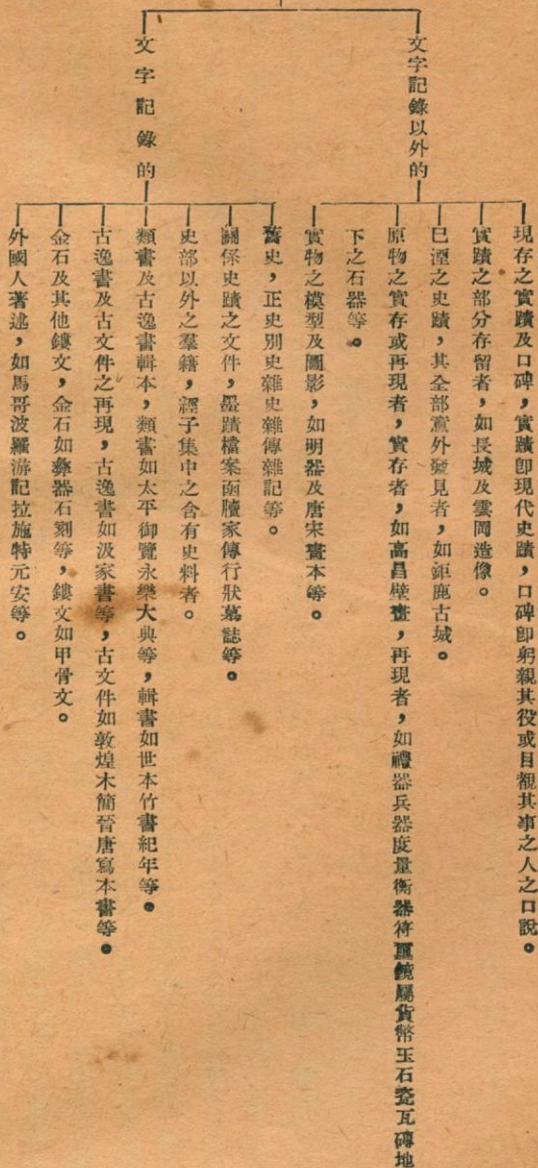 文字記錄以外的
現存之實蹟及口碑，實蹟卽現代史蹟，口碑卽躬親其役或目覩其事之人之口說。
實蹟之部分存留者，如長城及雲岡造像。
已湮之史蹟，其全部意外發見者，如鉅鹿古城。
原物之實存或再現者，實存者，如高昌壁畫，再現者，如禮器兵器度量衡器符璽鏡屬貨幣玉石瓷瓦磚地
下之石器等。
實物之模型及圖影，如明器及唐宋畫本等。
文字記錄的
舊史，正史別史雜史雜傳雜記等。
關係史蹟之文件，墨蹟檔案函牘家傳行狀墓誌等。
史部以外之羣籍，經子集中之含有史料者。
類書及古逸書輯本，類書如太平御覽永樂大典等，輯書如世本竹書紀年等。
古逸書及古文件之再現，古逸書如汲冢書等，古文件如敦煌木簡晉唐寫本書等。
金石及其他鏤文，金石如彝器石刻等，鏤文如甲骨文。
外國人著述，如馬哥波羅游記拉施特元安等。